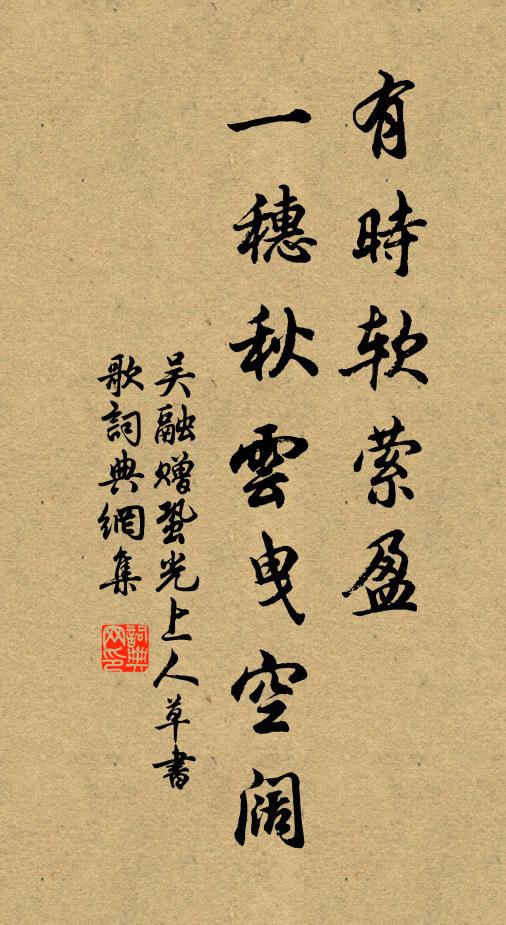 有時软萦盈
一穗秋雲曳空阔
吴融赠蛩光上人草書
歌詞典網集
詞典网印